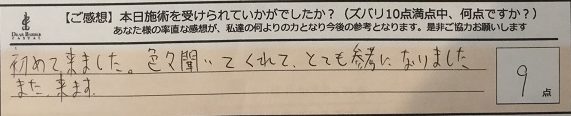 【ご感想】本日施術を受けられていかがでしたか？（ズバリ10点満点中、何点ですか？）
あなた様の率直な感想が、私達の何よりの力となり今後の参考となります。是非ご協力お願いします
初めて来ました。色々聞いてくれて、とても参考になりました
また、来ます。
9
点